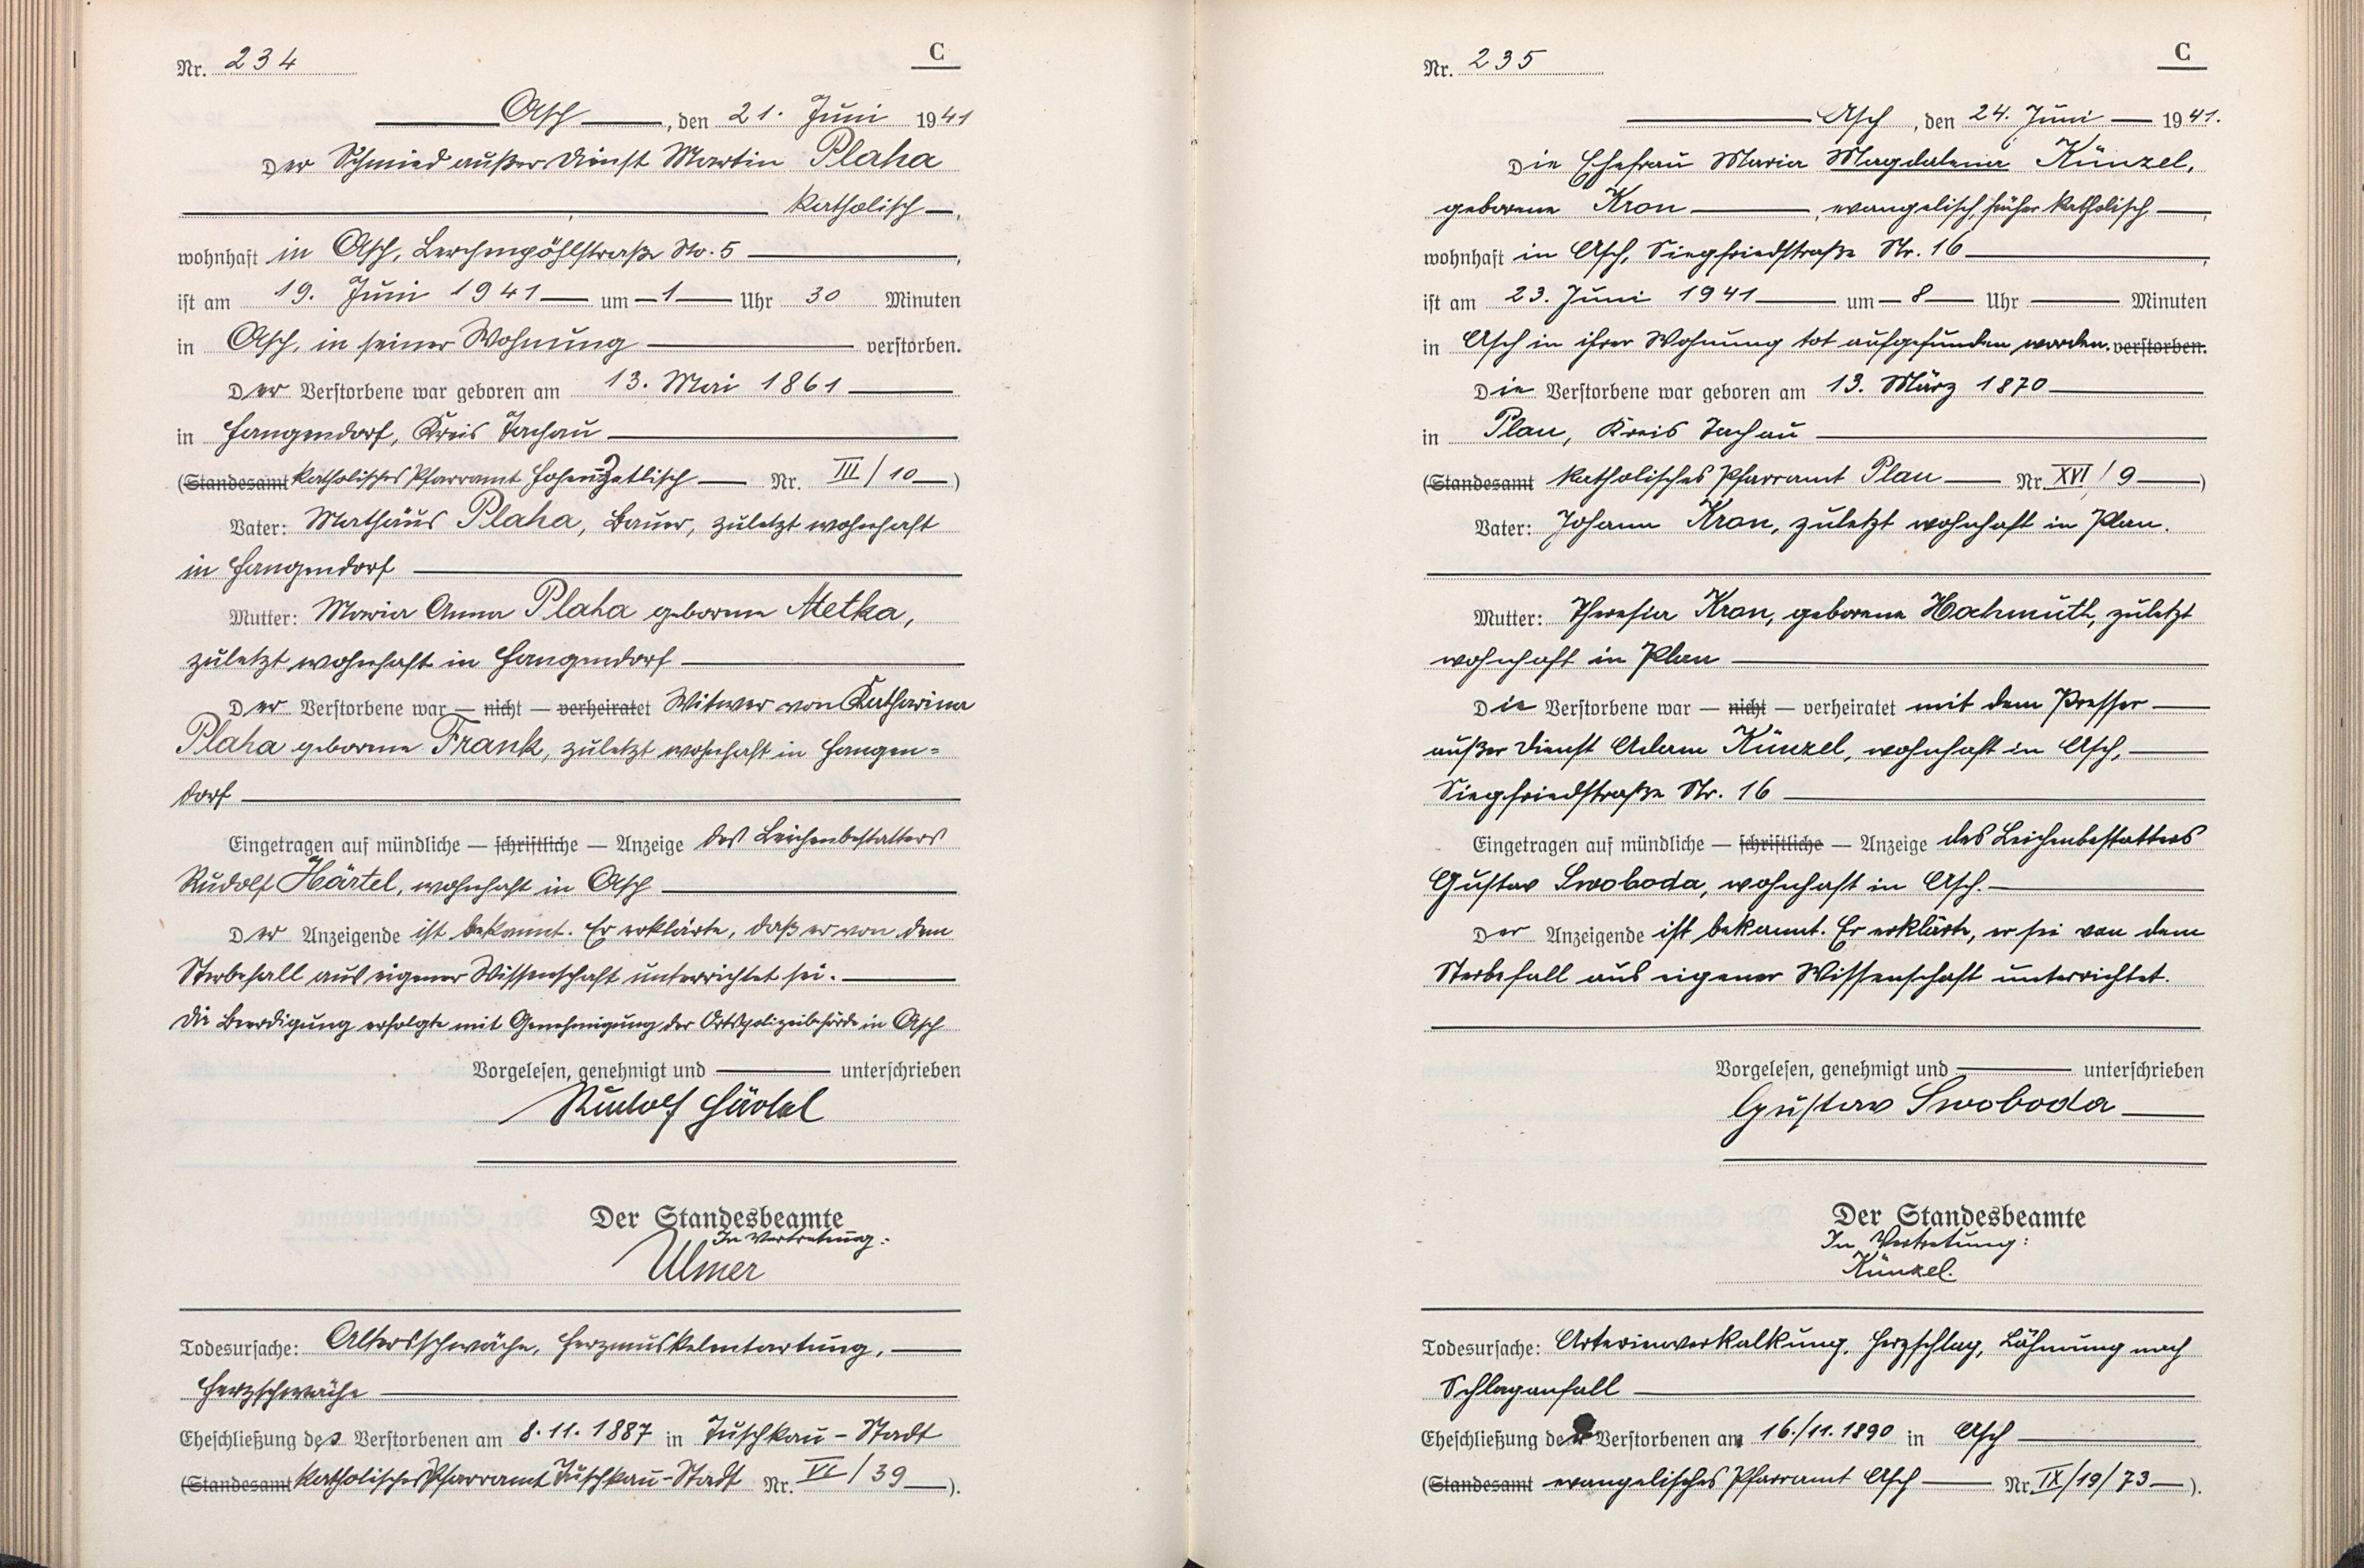 Nr. 234
C
Asch, den 21. Juni 1941
Der Schmied außer Dienst Martin Plaha
katholisch,
wohnhaft in Asch, Lerchenpöhlstraße No. 5,
ist am 19. Juni 1941 um 1 Uhr 30 Minuten
in Asch, in seiner Wohnung verstorben.
Der Verstorbene war geboren am 13. Mai 1861
in Hangendorf, Kreis Tachau
(Standesamt katholisches Pfarramt Hohenzetlisch Nr. III/10)
Vater: Mathäus Plaha, Bauer, zuletzt wohnhaft
in Hangendorf
Mutter: Maria Anna Plaha geborene Metka,
zuletzt wohnhaft in Hangendorf
Der Verstorbene war — nicht — verheiratet Witwer von Katharina
Plaha geborene Frank, zuletzt wohnhaft in Hangen=
dorf
Eingetragen auf mündliche — schriftliche — Anzeige des Leichenbestatters
Rudolf Härtel, wohnhaft in Asch
Der Anzeigende ist bekannt. Er erklärte, daß er von dem
Sterbefall aus eigener Wissenschaft unterrichtet sei.
Die Beerdigung erfolgte mit Genehmigung der Ortspolizeibehörde in Asch
Vorgelesen, genehmigt und unterschrieben
Rudolf Härtel
Der Standesbeamte
In Vertretung:
Ulmer
Todesursache: Altersschwäche, Herzmuskelentartung,
Herzschwäche
Eheschließung des Verstorbenen am 8.11.1887 in Tuschkau-Stadt
(Standesamt katholisches Pfarramt Tuschkau-Stadt Nr. VI/39).
Nr. 235
C
Asch, den 24. Juni 1941.
Die Ehefrau Maria Magdalena Künzel,
geborene Kron, evangelisch, früher katholisch,
wohnhaft in Asch, Siegfriedstraße Nr. 16,
ist am 23. Juni 1941 um 8 Uhr Minuten
in Asch in ihrer Wohnung tot aufgefunden worden. verstorben.
Die Verstorbene war geboren am 13. März 1870
in Plan, Kreis Tachau
(Standesamt katholisches Pfarramt Plan Nr. XVI/9)
Vater: Johann Kron, zuletzt wohnhaft in Plan.
Mutter: Theresia Kron, geborene Hochmuth, zuletzt
wohnhaft in Plan
Die Verstorbene war — nicht — verheiratet mit dem Presser
außer Dienst Adam Künzel, wohnhaft in Asch,
Siegfriedstraße Nr. 16
Eingetragen auf mündliche — schriftliche — Anzeige des Leichenbestatters
Gustav Swoboda, wohnhaft in Asch.
Der Anzeigende ist bekannt. Er erklärte, er sei von dem
Sterbefall aus eigener Wissenschaft unterrichtet.
Vorgelesen, genehmigt und unterschrieben
Gustav Swoboda
Der Standesbeamte
In Vertretung:
Künzel.
Todesursache: Arterienverkalkung, Herzschlag, Lähmung nach
Schlaganfall
Eheschließung der Verstorbenen am 16./11.1890 in Asch
(Standesamt evangelisches Pfarramt Asch Nr. IX/19/73).